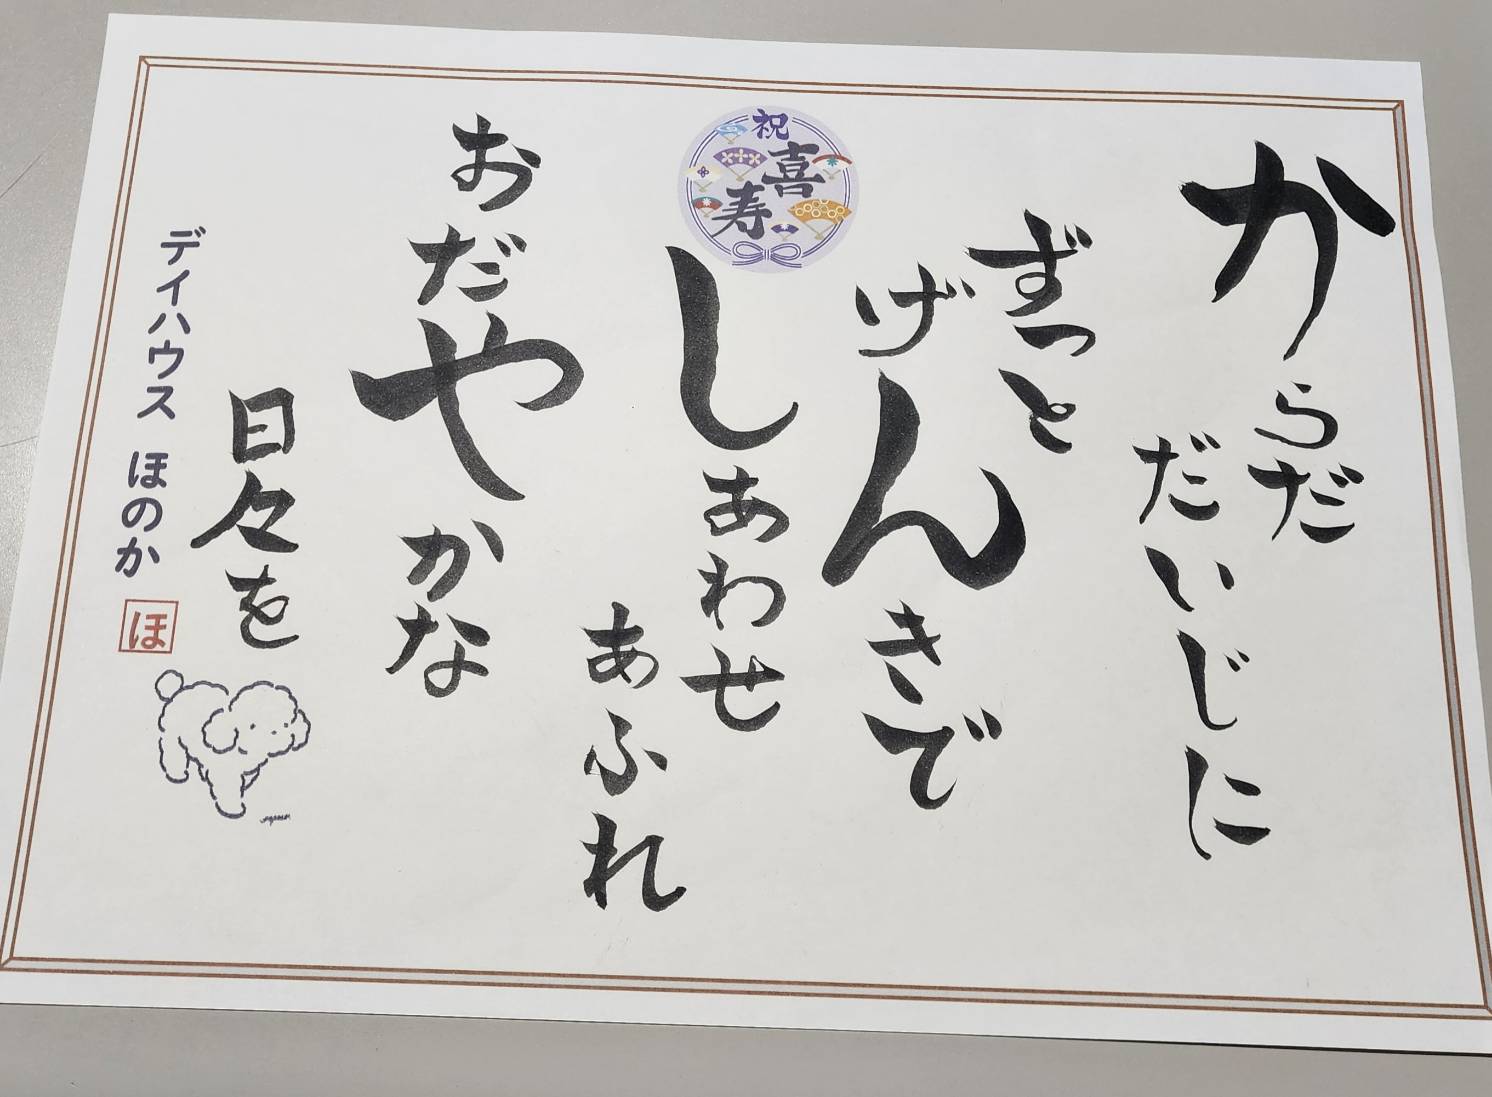 からだ
だいじに
ずっと
げんきで
祝
喜
寿
しあわせ
あふれ
おだやかな
日々を
デイハウス ほのか
ほ